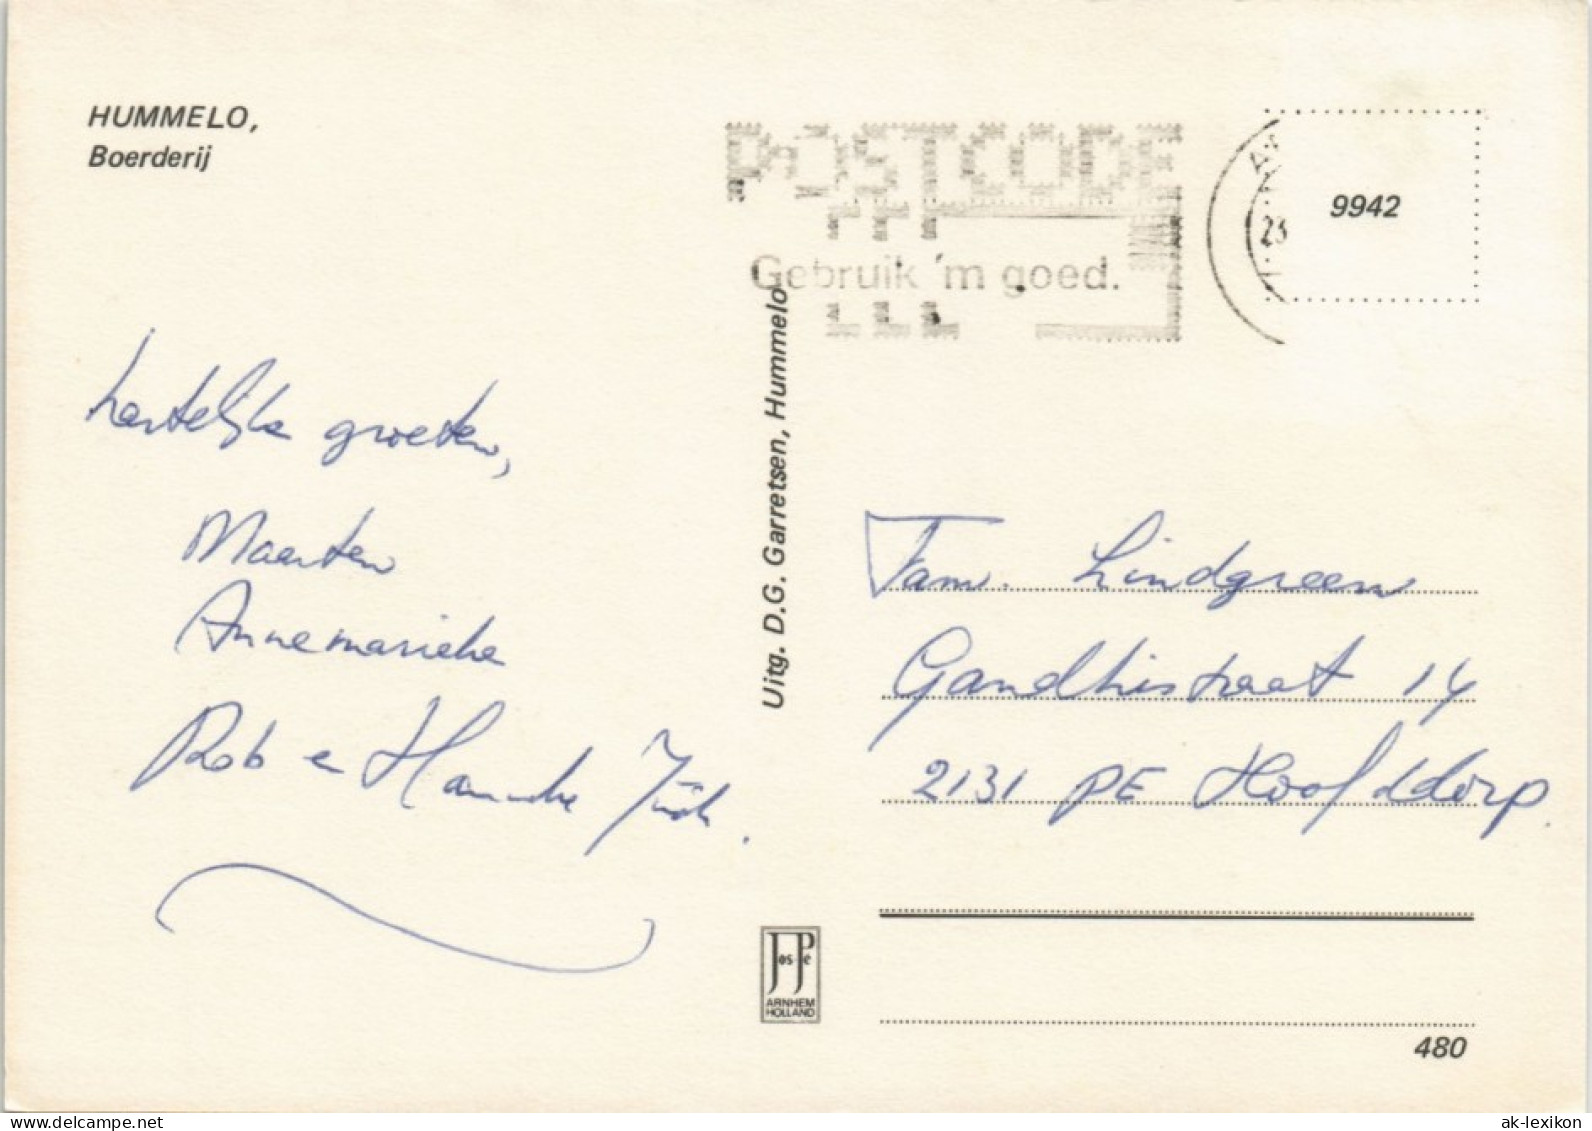 HUMMELO,
Boerderij
POSTCODE
Gebruik 'm goed.
23
9942
hartelijke groeten,
Maarten
Annemarieke
Rob e Hanneke
Uitg. D.G. Garretsen, Hummelo
Fam. Lindgreen
Gandhistraat 14
2131 PE Hoofddorp.
JosPe
ARNHEM
HOLLAND
480
ak-lexikon